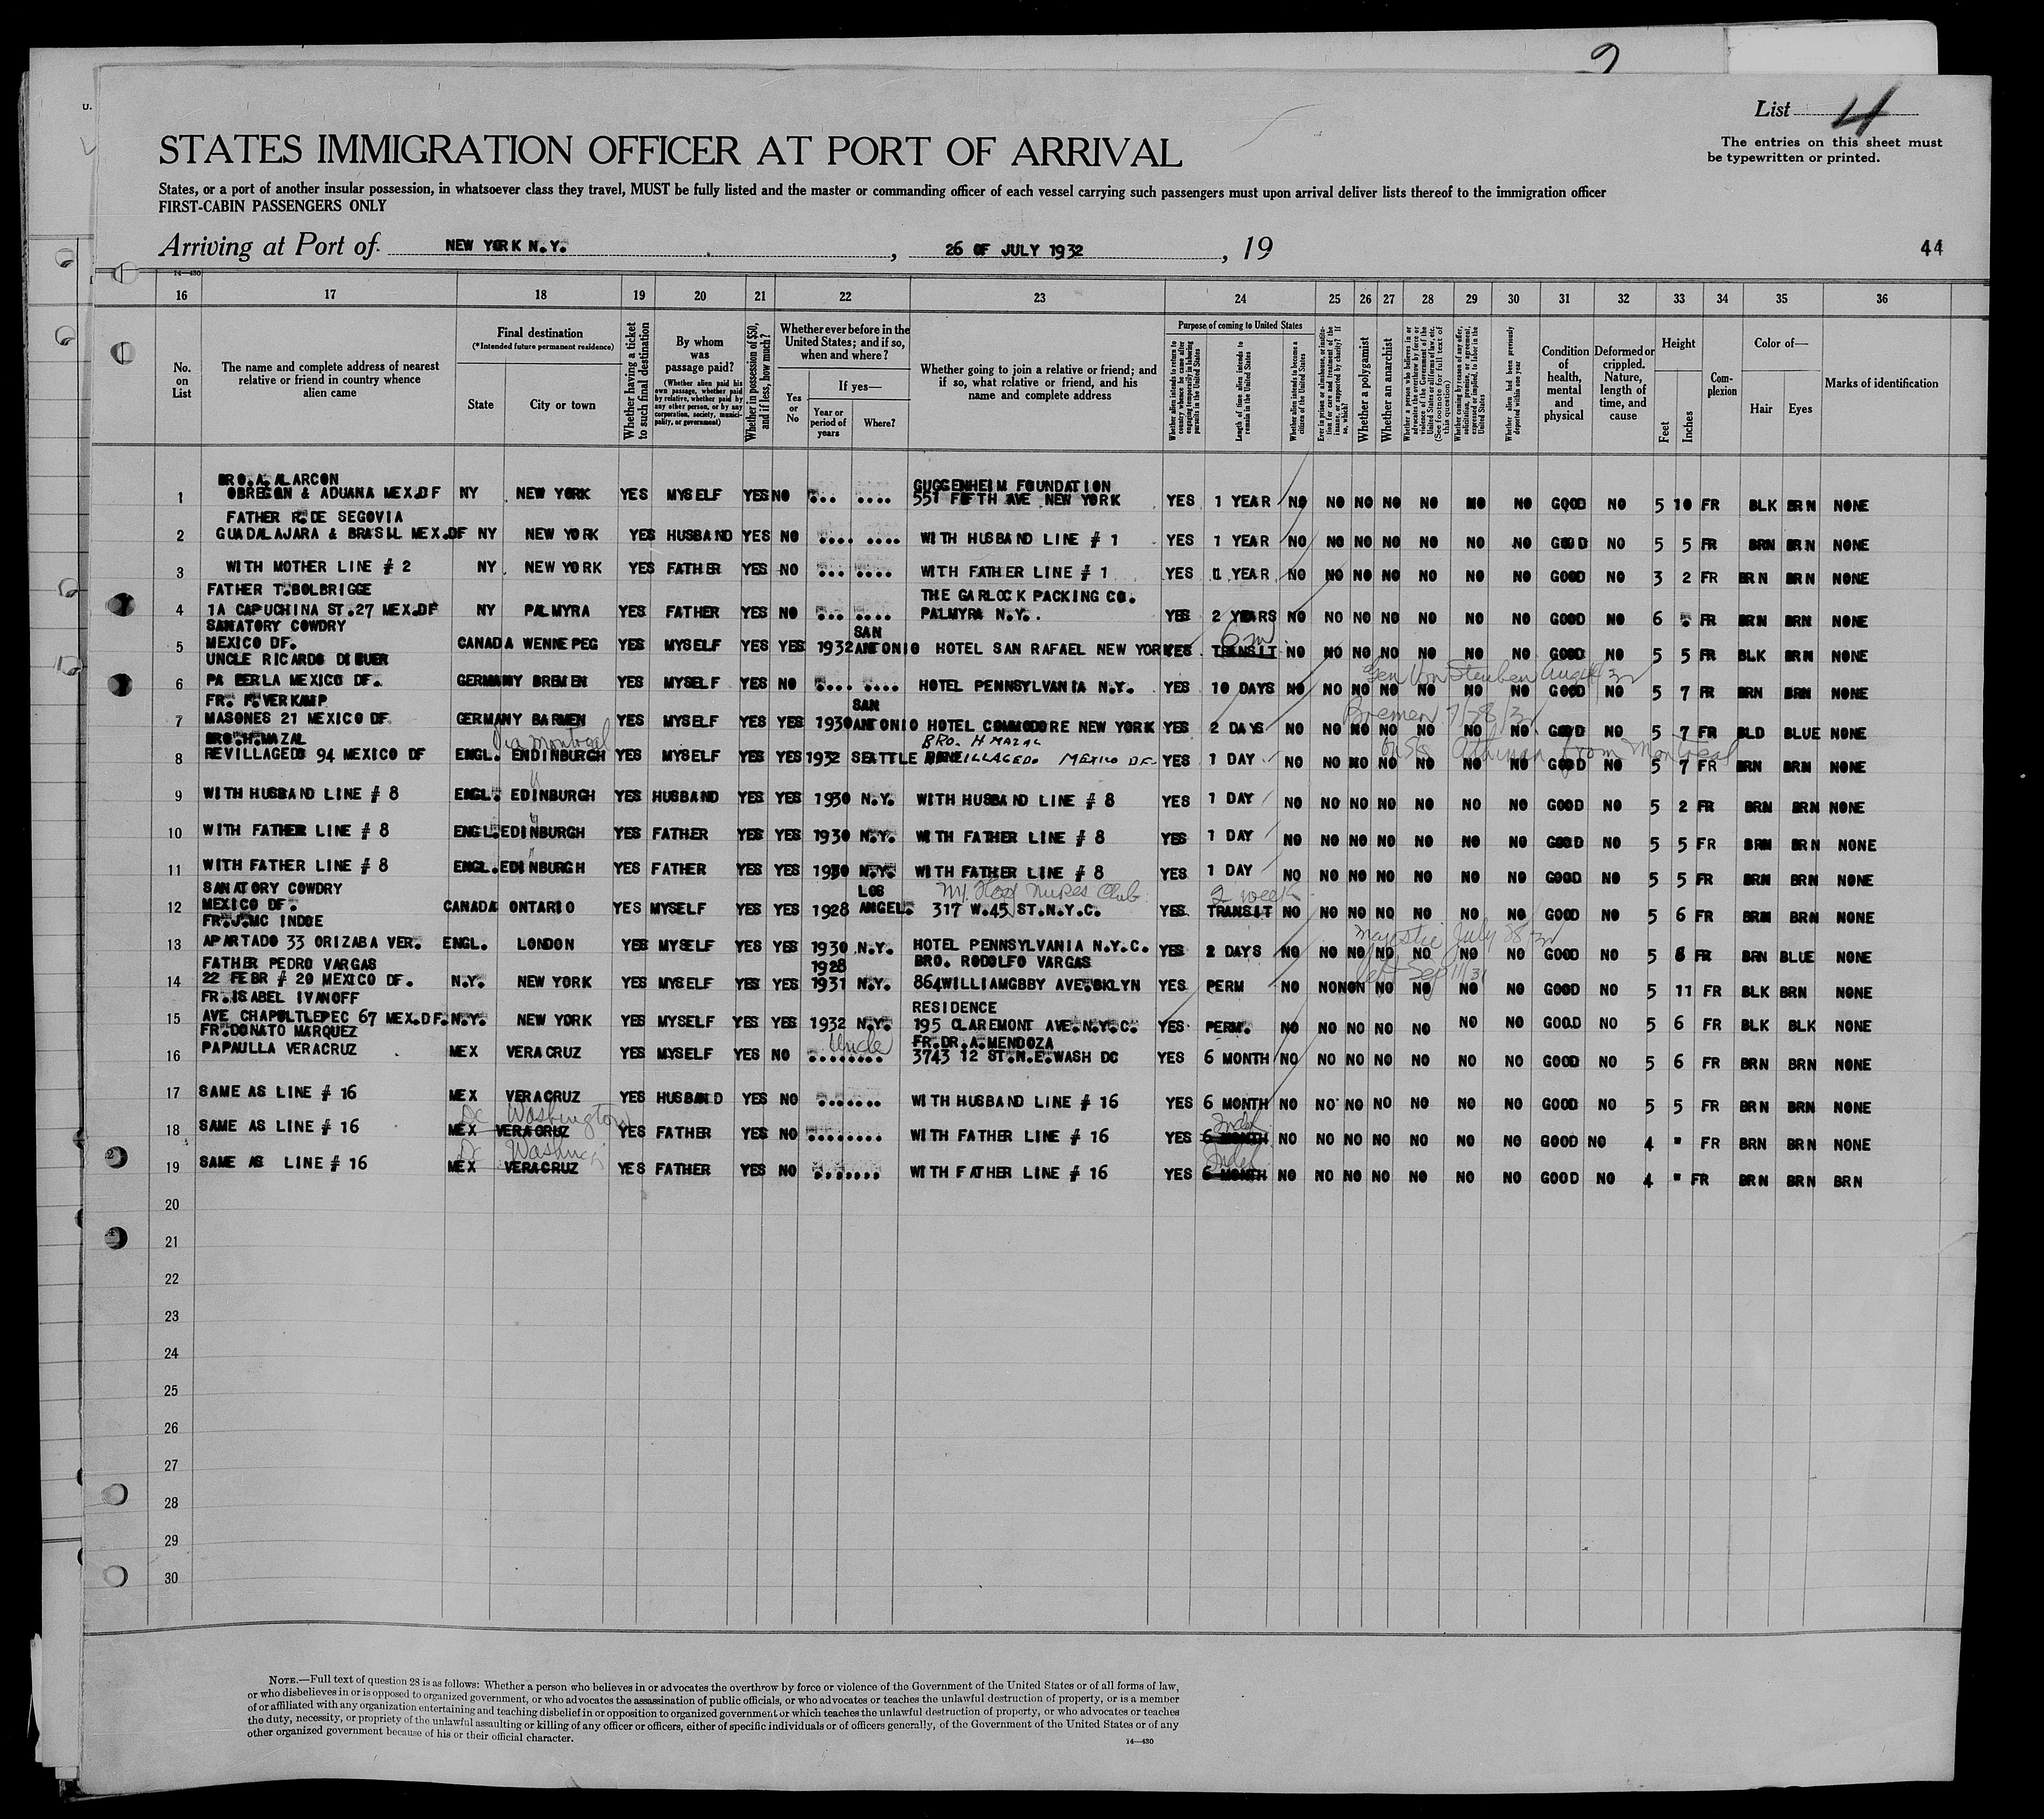 List 4
The entries on this sheet must
be typewritten or printed.
STATES IMMIGRATION OFFICER AT PORT OF ARRIVAL
States, or a port of another insular possession, in whatsoever class they travel, MUST be fully listed and the master or commanding officer of each vessel carrying such passengers must upon arrival deliver lists thereof to the immigration officer
FIRST-CABIN PASSENGERS ONLY
Arriving at Port of NEW YORK N.Y. , 26 OF JULY 1932 , 19
44
14—430
16 17 18 19 20 21 22 23 24 25 26 27 28 29 30 31 32 33 34 35 36
No. on List
The name and complete address of nearest relative or friend in country whence alien came
Final destination
(*Intended future permanent residence)
State
City or town
Whether having a ticket to such final destination
By whom was passage paid?
(Whether alien paid his own passage, whether paid by relative, whether paid by any other person, or by any corporation, society, municipality, or government)
Whether in possession of $50, and if less, how much?
Whether ever before in the United States; and if so, when and where?
Yes or No
If yes—
Year or period of years
Where?
Whether going to join a relative or friend; and if so, what relative or friend, and his name and complete address
Purpose of coming to United States
Whether alien intends to return to country whence he came after engaging temporarily in laboring pursuits in the United States
Length of time alien intends to remain in the United States
Whether alien intends to become a citizen of the United States
Ever in prison or almshouse, or institution for care and treatment of the insane, or supported by charity? If so, which?
Whether a polygamist
Whether an anarchist
Whether a person who believes in or advocates the overthrow by force or violence of the Government of the United States or all forms of law, etc. (See footnote for full text of this question)
Whether coming by reason of any offer, solicitation, promise, or agreement, expressed or implied, to labor in the United States
Whether alien had been previously deported within one year
Condition of health, mental and physical
Deformed or crippled. Nature, length of time, and cause
Height
Feet
Inches
Complexion
Color of—
Hair
Eyes
Marks of identification
BRO.A.ALARCON GUGGENHEIM FOUNDATION
1 OBREGON & ADUANA MEX.DF NY NEW YORK YES MYSELF YES NO 551 FIFTH AVE NEW YORK YES 1 YEAR NO NO NO NO NO NO NO GOOD NO 5 10 FR BLK BRN NONE
FATHER R.DE SEGOVIA
2 GUADALAJARA & BRASIL MEX.DF NY NEW YORK YES HUSBAND YES NO .... .... WITH HUSBAND LINE # 1 YES 1 YEAR NO NO NO NO NO NO NO GOOD NO 5 5 FR BRN BRN NONE
3 WITH MOTHER LINE # 2 NY NEW YORK YES FATHER YES NO ... .... WITH FATHER LINE # 1 YES 1 YEAR NO NO NO NO NO NO NO GOOD NO 3 2 FR BRN BRN NONE
FATHER T.BOLBRIGGE THE GARLOCK PACKING CO.
4 1A CAPUCHINA ST.27 MEX.DF NY PALMYRA YES FATHER YES NO ... .... PALMYRA N.Y. YES 2 YEARS NO NO NO NO NO NO NO GOOD NO 6 FR BRN BRN NONE
SANATORY COWDRY SAN 6 m
5 MEXICO DF. CANADA WENNEPEG YES MYSELF YES YES 1932 ANTONIO HOTEL SAN RAFAEL NEW YORK YES TRANSIT NO NO NO NO NO NO NO GOOD NO 5 5 FR BLK BRN NONE
UNCLE RICARDO DIBUER Gen Von Steuben Aug 4/32
6 PA PERLA MEXICO DF. GERMANY BREMEN YES MYSELF YES NO .... .... HOTEL PENNSYLVANIA N.Y. YES 10 DAYS NO NO NO NO NO NO NO GOOD NO 5 7 FR BRN BRN NONE
FR. P.VERKAMP SAN Bremen 7/28/32
7 MASONES 21 MEXICO DF GERMANY BARMEN YES MYSELF YES YES 1930 ANTONIO HOTEL COMMODORE NEW YORK YES 2 DAYS NO NO NO NO NO NO NO GOOD NO 5 7 FR BLD BLUE NONE
BRO.H.MAZAL Via Montreal BRO. H MAZAL Athenia from Montreal
8 REVILLAGEDO 94 MEXICO DF ENGL. ENDINBURGH YES MYSELF YES YES 1932 SEATTLE MEXICO DF YES 1 DAY NO NO NO NO NO NO NO GOOD NO 5 7 FR BRN BRN NONE
9 WITH HUSBAND LINE # 8 ENGL. EDINBURGH YES HUSBAND YES YES 1930 N.Y. WITH HUSBAND LINE # 8 YES 1 DAY NO NO NO NO NO NO NO GOOD NO 5 2 FR BRN BRN NONE
10 WITH FATHER LINE # 8 ENGL. EDINBURGH YES FATHER YES YES 1930 N.Y. WITH FATHER LINE # 8 YES 1 DAY NO NO NO NO NO NO NO GOOD NO 5 5 FR BRN BRN NONE
11 WITH FATHER LINE # 8 ENGL. EDINBURGH YES FATHER YES YES 1930 N.Y. WITH FATHER LINE # 8 YES 1 DAY NO NO NO NO NO NO NO GOOD NO 5 5 FR BRN BRN NONE
SANATORY COWDRY LOS Nurses Club 2 week
12 MEXICO DF. CANADA ONTARIO YES MYSELF YES YES 1928 ANGEL. 317 W.45 ST.N.Y.C. YES TRANSIT NO NO NO NO NO NO NO GOOD NO 5 6 FR BRN BRN NONE
FR.J.MC INDOE Majestic July 28/32
13 APARTADO 33 ORIZABA VER. ENGL. LONDON YES MYSELF YES YES 1930 N.Y. HOTEL PENNSYLVANIA N.Y.C. YES 2 DAYS NO NO NO NO NO NO NO GOOD NO 5 8 FR BRN BLUE NONE
FATHER PEDRO VARGAS 1928 BRO. RODOLFO VARGAS left Sep 11/31
14 22 FEBR # 20 MEXICO DF. N.Y. NEW YORK YES MYSELF YES YES 1931 N.Y. 864WILLIAMGBBY AVE.BKLYN YES PERM NO NO NO NO NO NO NO GOOD NO 5 11 FR BLK BRN NONE
FR.ISABEL IVANOFF RESIDENCE
15 AVE CHAPULTLEPEC 67 MEX.DF. N.Y. NEW YORK YES MYSELF YES YES 1932 N.Y. 195 CLAREMONT AVE.N.Y.C. YES PERM. NO NO NO NO NO NO NO GOOD NO 5 6 FR BLK BLK NONE
FR.DONATO MARQUEZ Uncle FR.DR.A.MENDOZA
16 PAPAULLA VERACRUZ MEX VERACRUZ YES MYSELF YES NO ........ 3743 12 ST.N.E.WASH DC YES 6 MONTH NO NO NO NO NO NO NO GOOD NO 5 6 FR BRN BRN NONE
17 SAME AS LINE # 16 MEX VERACRUZ YES HUSBAND YES NO ....... WITH HUSBAND LINE # 16 YES 6 MONTH NO NO NO NO NO NO NO GOOD NO 5 5 FR BRN BRN NONE
DC Washington Indef
18 SAME AS LINE # 16 MEX VERACRUZ YES FATHER YES NO ........ WITH FATHER LINE # 16 YES 6 MONTH NO NO NO NO NO NO NO GOOD NO 4 " FR BRN BRN NONE
DC Indef
19 SAME AS LINE # 16 MEX VERACRUZ YES FATHER YES NO ....... WITH FATHER LINE # 16 YES 6 MONTH NO NO NO NO NO NO NO GOOD NO 4 " FR BRN BRN BRN
20
21
22
23
24
25
26
27
28
29
30
NOTE.—Full text of question 28 is as follows: Whether a person who believes in or advocates the overthrow by force or violence of the Government of the United States or of all forms of law,
or who disbelieves in or is opposed to organized government, or who advocates the assassination of public officials, or who advocates or teaches the unlawful destruction of property, or is a member
of or affiliated with any organization entertaining and teaching disbelief in or opposition to organized government or which teaches the unlawful destruction of property, or who advocates or teaches
the duty, necessity, or propriety of the unlawful assaulting or killing of any officer or officers, either of specific individuals or of officers generally, of the Government of the United States or of any
other organized government because of his or their official character.
14—430